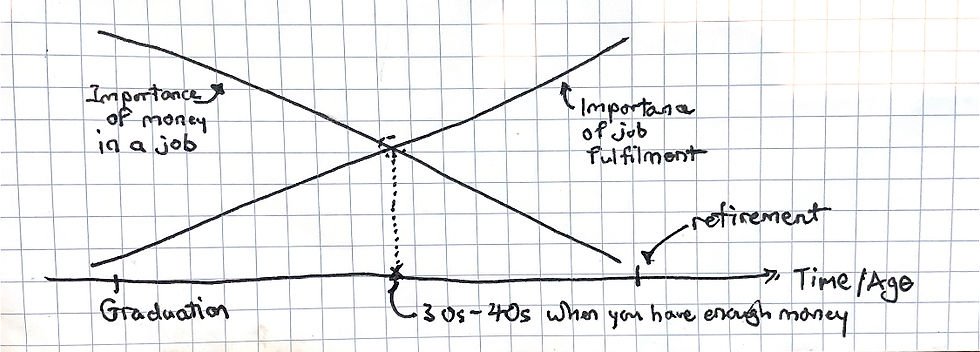 Importance
of money
in a job
Importance
of job
fulfilment
retirement
Time/Age
Graduation
30s-40s when you have enough money